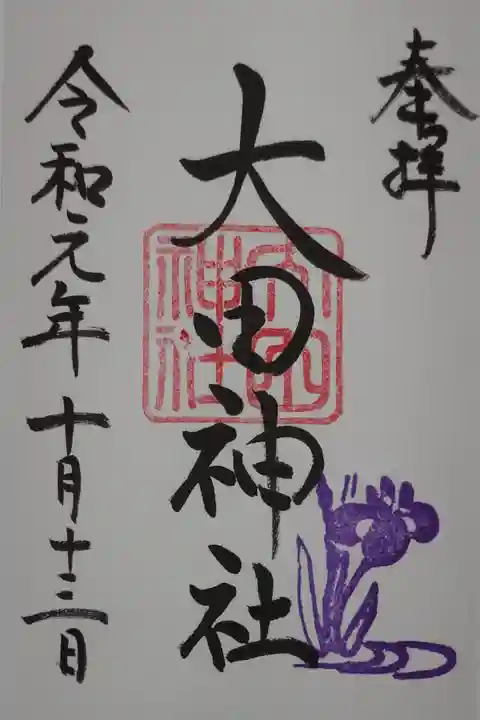 奉拝
大田神社
令和元年十月十三日
大田
神社